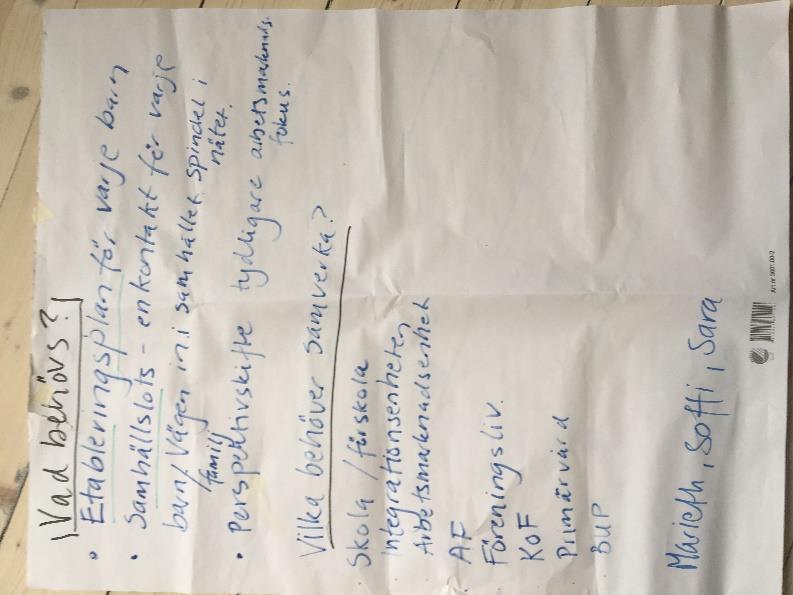 Vad behövs?
• Etableringsplan för varje barn
• Samhällslots - en kontakt för varje
barn/ Vägen in i samhället spindel i
familj
nätet.
• Perspektivskifte tydligare arbetsmarknads.
fokus.
Vilka behöver samverka?
Skola / förskola
Integrationsenheten
Arbetsmarknadsenhet
AF
Föreningsliv.
KOF
Primärvård
BUP
Marieth, Soffi, Sara